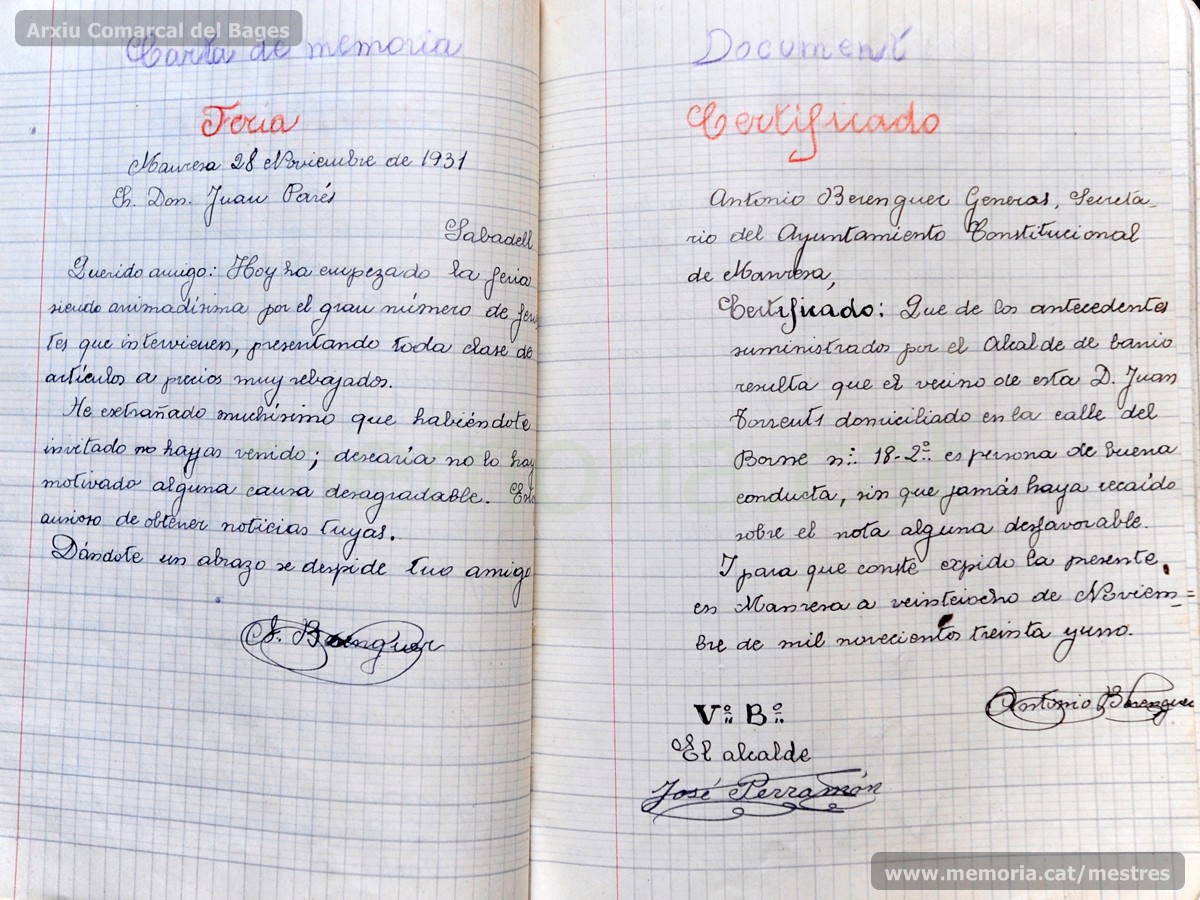 Arxiu Comarcal del Bages
Carta de memoria
Feria
Manresa 28 Noviembre de 1931
Sr. Don. Juan Parés
Sabadell
Querido amigo: Hoy ha empezado la feria
siendo animadísima por el gran número de ferian
tes que intervienen, presentando toda clase de
artículos a precios muy rebajados.
He extrañado muchísimo que habiéndote
invitado no hayas venido; desearía no lo hay
motivado alguna causa desagradable. Esto
ansioso de obtener noticias tuyas.
Dándote un abrazo se despide tuo amigo
A. Berenguer
Document
Certificado
Antonio Berenguer Generas, Secreta-
rio del Ayuntamiento Constitucional
de Manresa,
Certificado: Que de los antecedentes
suministrados por el Alcalde de barrio
resulta que el vecino de esta D. Juan
Torrents domiciliado en la calle del
Borne n.º 18-2.º es persona de buena
conducta, sin que jamás haya recaído
sobre el nota alguna desfavorable.
I para que conste expido la presente
en Manresa a veinteiocho de Noviem=
bre de mil novecientos treinta yuno.
Antonio Berenguer
Vº Bº
El alcalde
José Perramón
www.memoria.cat/mestres